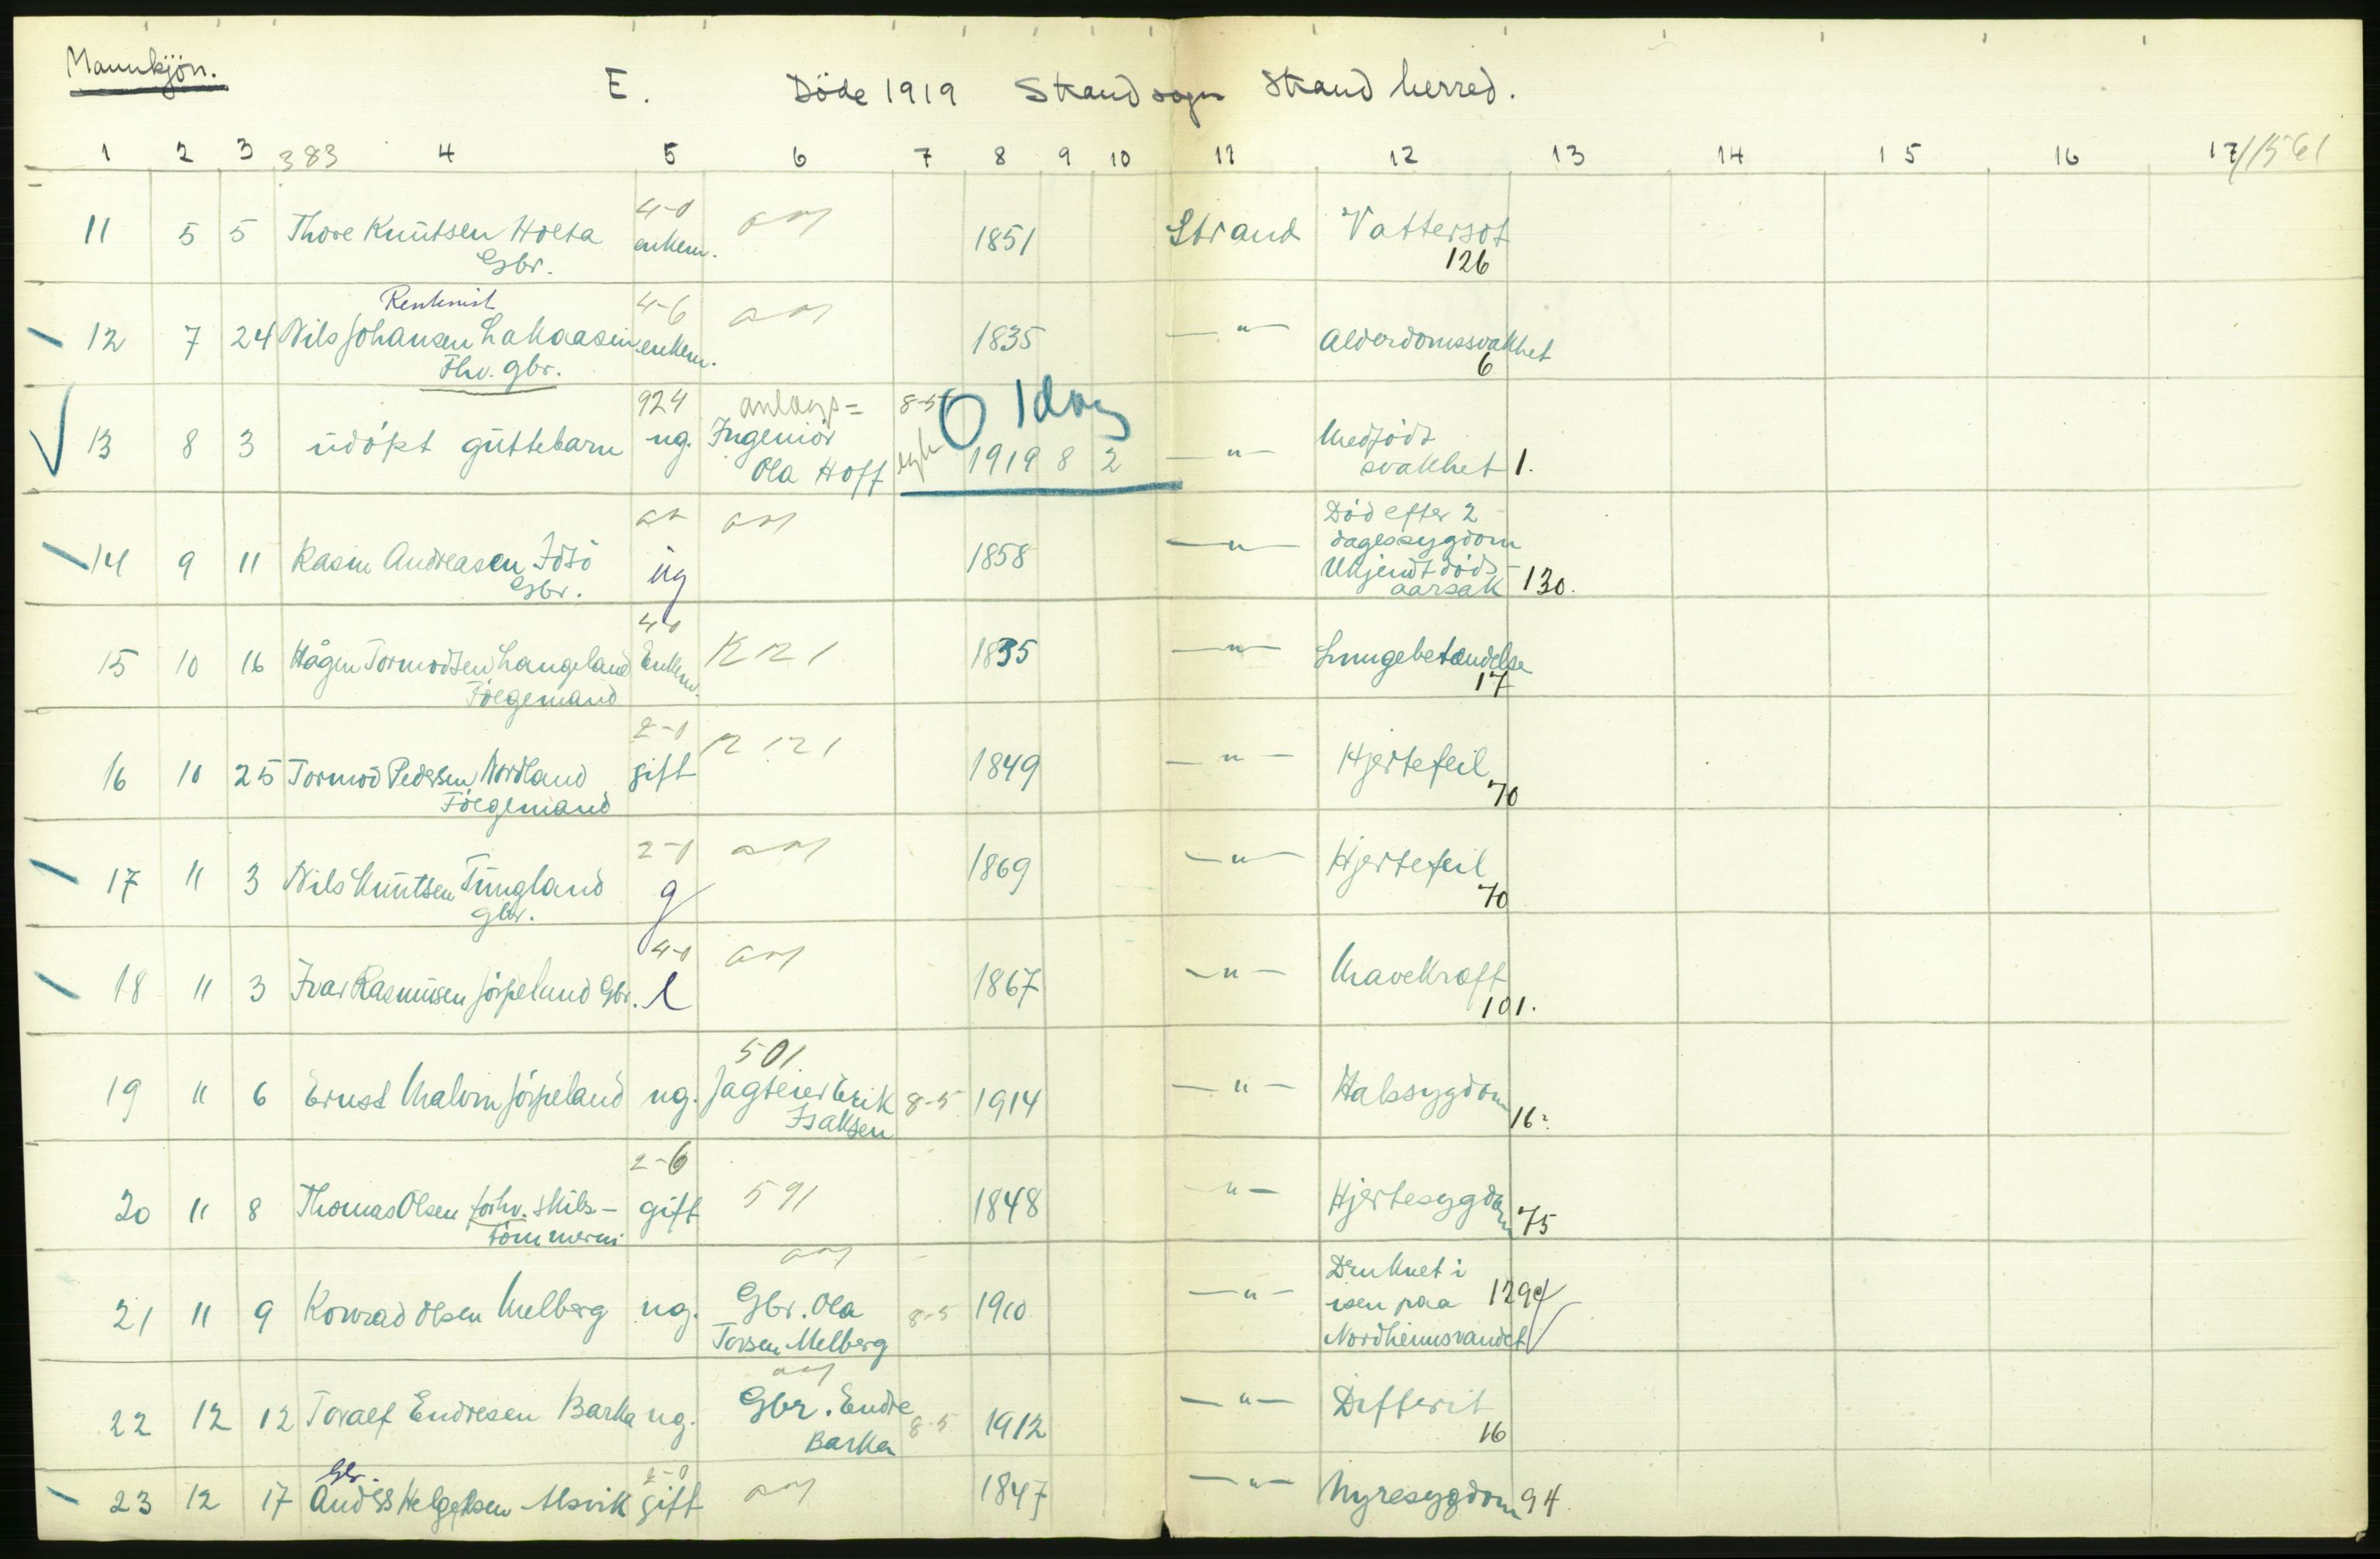 Mannkjön.
E. Döde 1919 Strand sogn Strand herred.
1 2 3 383 4 5 6 7 8 9 10 11 12 13 14 15 16 17/1561
4-0
11 5 5 Thore Knutsen Holta enkem. 1851 Strand Vattersot
Gbr. 126
Rentenist 4-6
12 7 24 Nils Johansen enkem. 1835 —"— Alderdomssvakhet
Fhv. gbr. 6
924 anlægs= 8-5 0 1 dag
13 8 3 udöpt guttebarn ug. Ingeniör 1919 8 2 —"— Medfödt
Ola Hoff svakhet 1.
Död efter 2
14 9 11 Rasm Andreasen Idsö ug 1858 —"— dagessygdom
Gbr. Ukjendt döds-
aarsak 130.
4-0
15 10 16 Hågen Tormodsen Langeland Enkem. 1835 —"— Lungebetændelse
Fölgemand 17
2-0
16 10 25 Tormod Pedersen Nordland gift 1849 —"— Hjertefeil
Fölgemand 70
2-0
17 11 3 Nils Knutsen Tungland g 1869 —"— Hjertefeil
gbr. 70
4-0
18 11 3 Ivar Rasmusen Jörpeland Gbr. e 1867 —"— Mavekræft
101.
501
19 11 6 Ernst Malvin Jörpeland ug. Jagteier Erik 8-5 1914 —"— Halssygdom
Isaksen 16?
2-6
20 11 8 Thomas Olsen forhv. skibs- gift 591 1848 —"— Hjertesygdom
tömmerm 75
Druknet i
21 11 9 Konrad Olsen Melberg ug. Gbr. Ola 8-5 1910 —"— isen paa 129
Torsen Melberg Nordheimsvandet
22 12 12 Toralf Endresen Barka ug. Gbr. Endre 8-5 1912 —"— Difterit
Barka 16
Gbr. 2-0
23 12 17 Helgesen Alsvik gift 1847 —"— Nyresygdom 94.